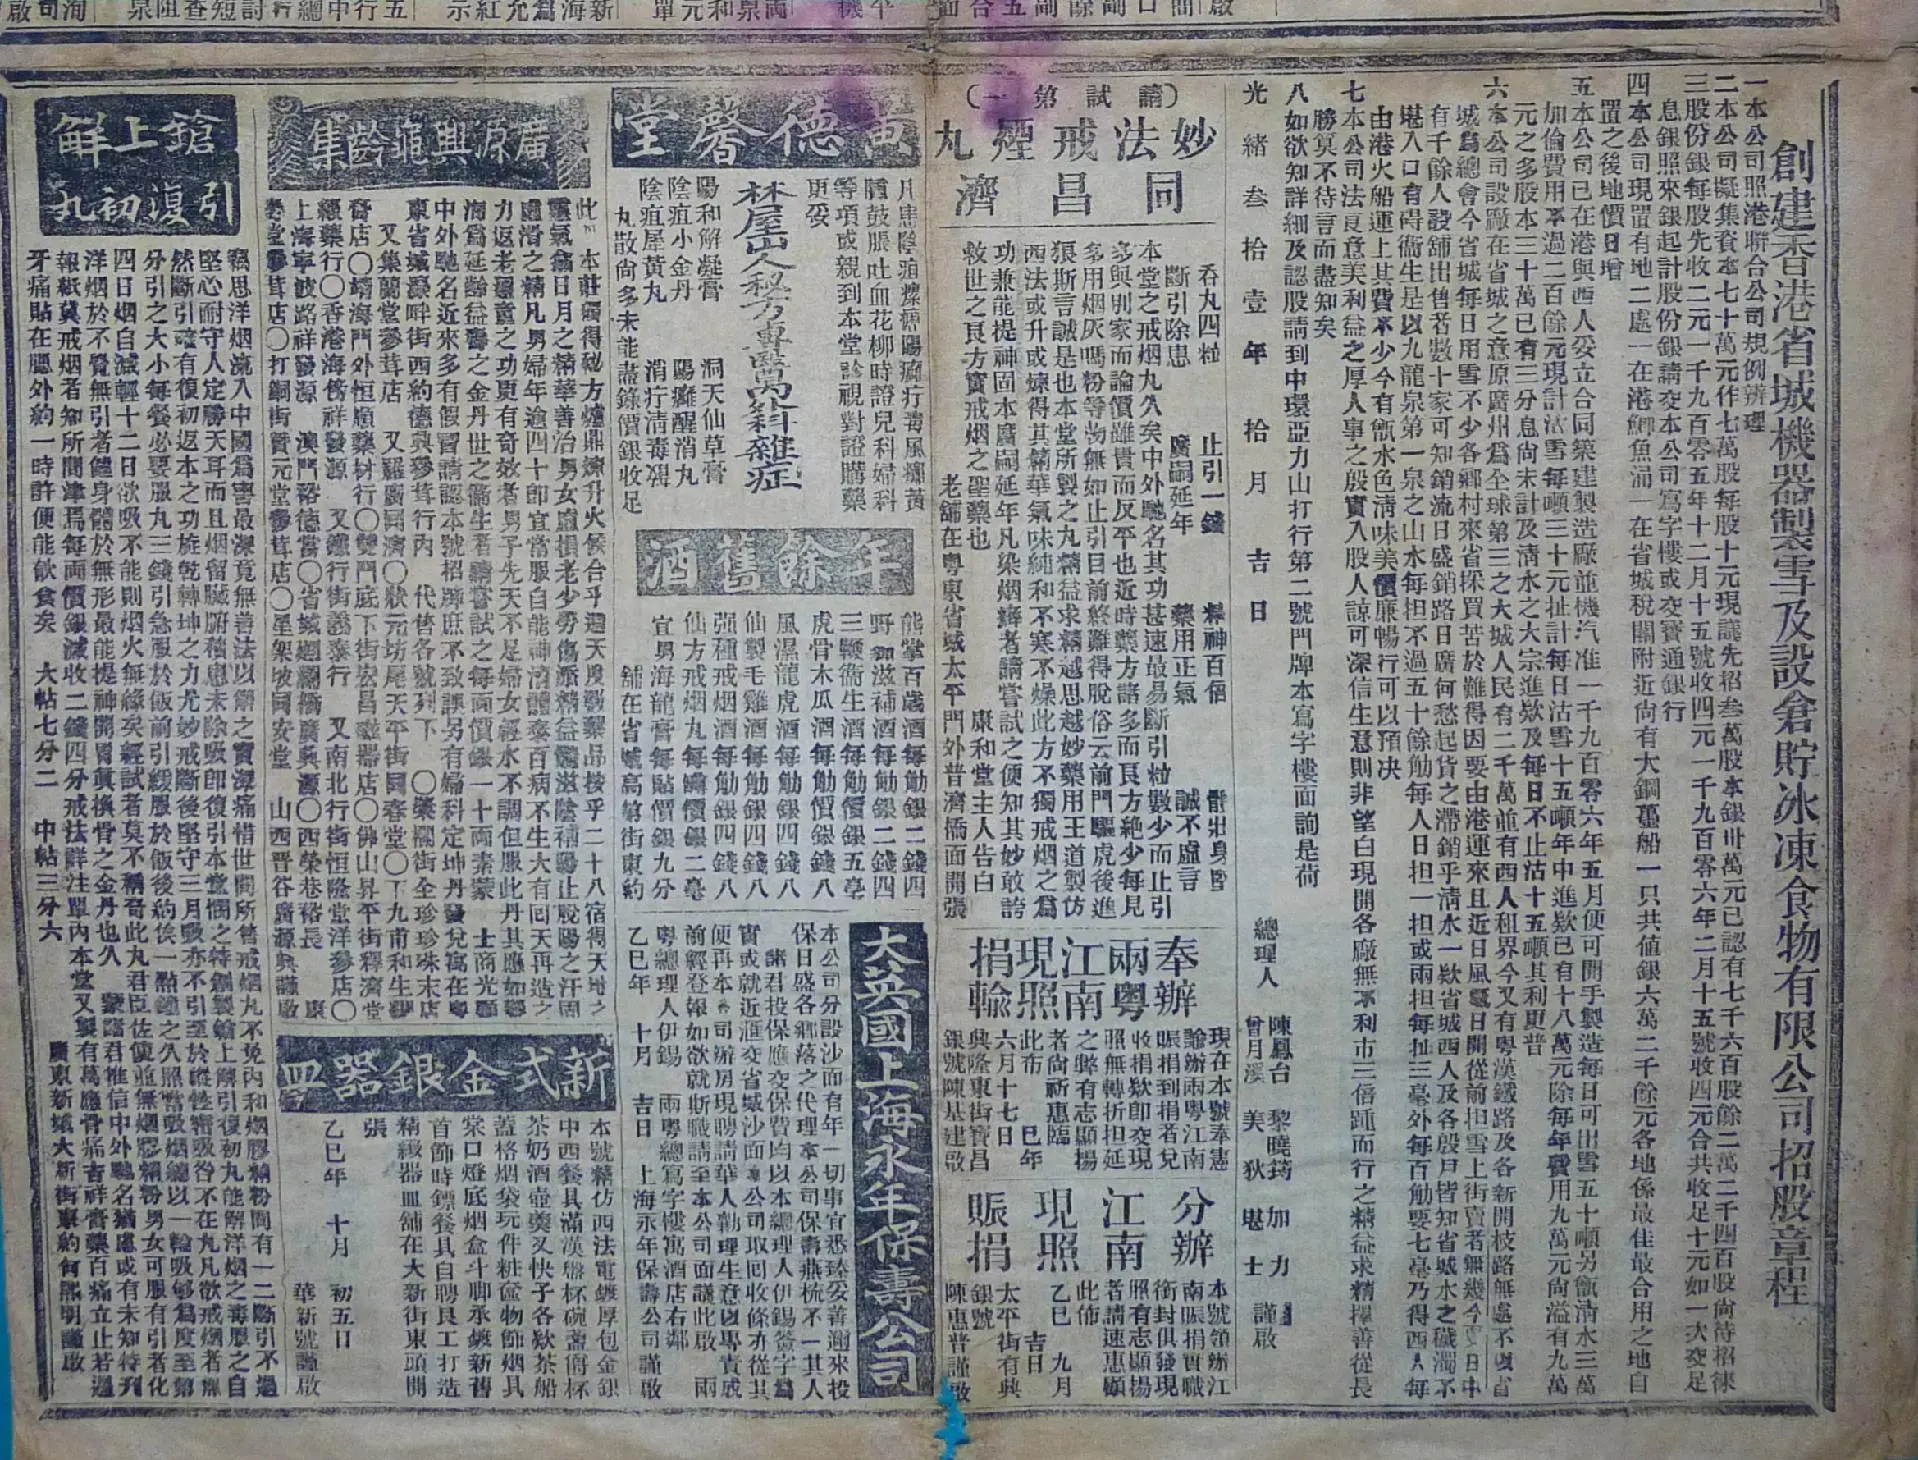 創建香港省城機器製雪及設倉貯冰凍食物有限公司招股章程
一本公司照港聯合公司規例辦理
二本公司擬集資本七十萬元作七萬股每股十元現議先招叁萬股本銀卅萬元已認有七千六百股餘二萬二千四百股尚待招徠
三股份銀每股先收二元一千九百零五年十二月十五號收四元一千九百零六年二月十五號收四元合共收足十元如一大交足
息銀照來銀起計股份銀請交本公司寫字樓或交寶通銀行
四本公司現置有地二處一在港鰂魚涌一在省城稅關附近尚有大鋼躉船一只共值銀六萬二千餘元各地係最佳最合用之地自
置之後地價日增
五本公司已在港與西人妥立合同築建製造廠並機汽准一千九百零六年五月便可開手製造每日可出雪五十噸另甑清水三萬
加倫費用不過二百餘元現計沽雪每噸三十元扯計每日沽雪十五噸年中進欵已有十八萬元除每年費用九萬元尚溢有九萬
元之多股本三十萬已有三分息尚未計及清水之大宗進欵及每日不止沽十五噸其利更普
六本公司設廠在省城之意原廣州為全球第三之大城人民有二千萬並有西人租界今又有粵漢鐵路及各新開枝路無處不以省
城為總會今省城每日用雪不少各鄉村來省採買苦於難得因要由港運來且近日風氣日開從前担雪上街賣者無幾今日中
有千餘人設舖出售者數十家可知銷流日盛銷路日廣何愁起貨之滯銷乎清水一欵省城西人及各殷戶皆知省城水之穢濁不
堪入口有碍衞生是以九龍泉第一泉之山水每担不過五十餘觔每人日担一担或兩担每扯三毫外每百觔要七毫乃得西人每
由港火船運上其費不少今有甑水色清味美價廉暢行可以預决
七本公司法良意美利益之厚人事之殷實入股人諒可深信生意則非望白現開各廠無不利市三倍踵而行之精益求精擇善從長
勝冥不待言而盡知矣
八如欲知詳細及認股請到中環亞力山打行第二號門牌本寫字樓面詢是荷
總理人 陳鳳台 黎曉荺 加力
曾月溪 美狄 堪士 謹啟
光緒叁拾壹年拾月吉日
(請試第一)
妙法戒煙丸
同昌濟
吞丸四粒 止引一錢 精神百倍 體壯身皆
斷引除患 廣嗣延年 藥用正氣 誠不虛言
本堂之戒烟丸久矣中外馳名其功甚速最易斷引粒數少而止引
多與別家而論價雖貴而反平也近時藥方諸多而良方絶少每見
多用烟灰嗎粉等物無如止引目前終難得脫俗云前門驅虎後進
狼斯言誠是也本堂所製之丸精益求精越思越妙藥用王道製仿
西法或升或煉得其精華氣味純和不寒不燥此方不獨戒烟之為
功兼能提神固本廣嗣延年凡染烟癖者請嘗試之便知其妙敢誇
救世之良方實戒烟之聖藥也 康和堂主人告白
老舖在粵東省城太平門外普濟僑面開張
奉辦兩粵江南現照捐輸
現在本號奉憲
諭辦兩粵江南
賑捐到捐者兌
收捐欵即交現
照無轉折担延
之弊有志顯楊
者尚祈惠臨
此布 巳年
六月十七日
興隆東街寶昌
銀號陳基建啟
分辦江南現照賑捐
本號領辦江
南賑捐實職
銜封俱發現
照有志顯揚
者請速惠顧
此佈
乙巳 九月
吉日
太平街有興
銀號
陳惠普謹啟
黃德馨堂
月患陰疽癆瘵陽痲疔毒風癱黃
體鼓脹吐血花柳時證兒科婦科
等項或親到本堂診視對證購藥
更妥
林屋山人秘方專醫內科雜症
陽和解凝膏 洞天仙草膏
陰疽小金丹 陽癰醒消丸
陰疽犀黃丸 消疔清毒
丸散尚多未能盡錄價銀收足
年餘舊酒
熊掌百歲酒每觔銀二錢四
野卸滋補酒每觔銀二錢四
三鞭衞生酒每觔價銀五毫
虎骨木瓜酒每觔價銀錢八
風濕龍虎酒每觔銀四錢八
仙製毛雞酒每觔銀四錢八
强種戒烟酒每觔銀四錢八
仙方戒烟丸每罇價銀二毫
宜男海龍膏每貼價銀九分
舖在省城高第街東約
大英國上海永年保壽公司
本公司分設沙面有年一切事宜悉臻妥善邇來投
保日盛各鄉落之代理本公司保壽燕梳不一其人
諸君投保應交保費均以本總理人伊錫簽字為
實或就近滙交省城沙面公司取回收條功從其
便再本公司辦房現聘請華人勤理生意以專責成
前經登報如欲就斯職請至本公司面議此啟 兩
粵總理人伊錫 兩粵總寫字樓寓酒店右鄰
乙巳年 十月 吉日 上海永年保壽公司謹啟
廣源興龜齡集
此 本莊獨得秘方爐鼎煉升火候合乎週天度數藥品按乎二十八宿得天增之
靈氣偷日月之精華善治男女虛損老少勞傷添精益髓滋陰補陽止脫陽之汗固
虛滑之精凡男婦年逾四十即宜常服自能神清體泰百病不生大有回天再造之
力返老還童之功更有奇效者男子先天不足婦女經水不調但服此丹其應如響
海為延齡益壽之金丹世之衞生者請嘗試之每両價銀一十両素蒙 士商光顧
中外馳名近來多有假冒請認本號招牌庶不致誤另有婦科定坤丹發兌寓在粵
東省城濠畔街西約德興蔘茸行內 代售各號列下 〇槳欄街全珍珍珠末店
又集蘭堂蔘茸店 又羅廣同濟〇狀元坊尾天平街同春堂〇下九甫和生膠
店〇靖海門外恒順藥材行〇雙門底下街宏昌磁器店〇佛山昇平街釋濟堂
藥行〇香港海傍祥發源 又鐵行街義泰行 又南北行街恒隆堂洋蔘店〇
上海寧波路祥發源 澳門裕德當〇省城迴瀾橋廣興源〇西榮巷裕長
堂蔘茸店〇打銅街寶元堂蔘茸店〇星架坡同安堂 山西晋谷廣源興謹啟
新式金銀器皿
本號精仿西法電鍍厚包金銀
中西餐具滿漢盤杯碗蓋脩杯
茶奶酒壺羹叉快子各欵茶船
蓋格烟袋玩件粧奩物飾烟具
棠口燈底烟盒斗脚承鍍新舊
首飾時鏢餐具自聘良工打造
精緻器皿舖在大新街東頭開
張
乙巳年 十月 初五日
華新號謹啟
鎗上鮮引復初丸
竊思洋烟流入中國為害最深竟無善法以解之實深痛惜世間所售戒烟丸不免內和烟膠精粉間有一二斷引不過
堅心耐守人定勝天耳而且烟留臟腑積患未除吸即復引本堂憫之特劑製鎗上解引復初丸能解洋烟之毒服之自
然斷引確有復初返本之功旋乾轉坤之力尤妙戒斷後堅守三月吸亦不引至於縱性審吸咎不在丸凡欲戒烟者解
分引之大小每餐必要服丸三錢引急服於飯前引緩服於飯後約俟一點鐘之久照常吸烟總以一輪吸够為度至第
四日烟自減輕十二日欲吸不能則烟火無緣矣經試者莫不稱奇此丸君臣佐使並無烟膠精粉男女可服有引者化
洋烟於不覺無引者健身體於無形最能提神開胃眞換骨之金丹也久 蒙諸君推信中外馳名猶慮或有未知特刋
報紙冀戒烟者知所問津焉每両價銀減收二錢四分戒法詳注單內本堂又製有萬應骨痛吉祥膏藥百痛立止若遇
牙痛貼在腮外約一時許便能飲食矣 大帖七分二 中帖三分六 廣東新城大新街東約何熙明謹啟